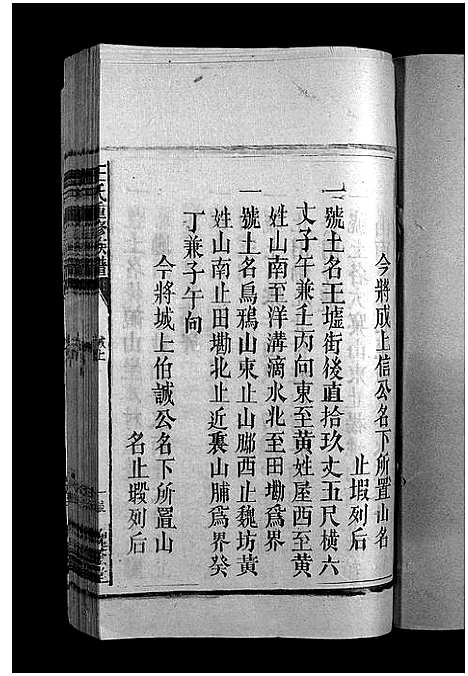 今將成上信公名下所置山名
止塅列后
一號土名王墟街後直拾玖丈五尺橫六
丈子午兼壬丙向東至黄姓屋西至黄
姓山南至洋溝滴水北至田墈爲界
一號土名烏鴉山東止山腳西止魏坊黄
姓山南止田墈北止近裏山脯爲界癸
丁兼子午向
今將城上伯誠公名下所置山
名止塅列后
王氏重修族譜